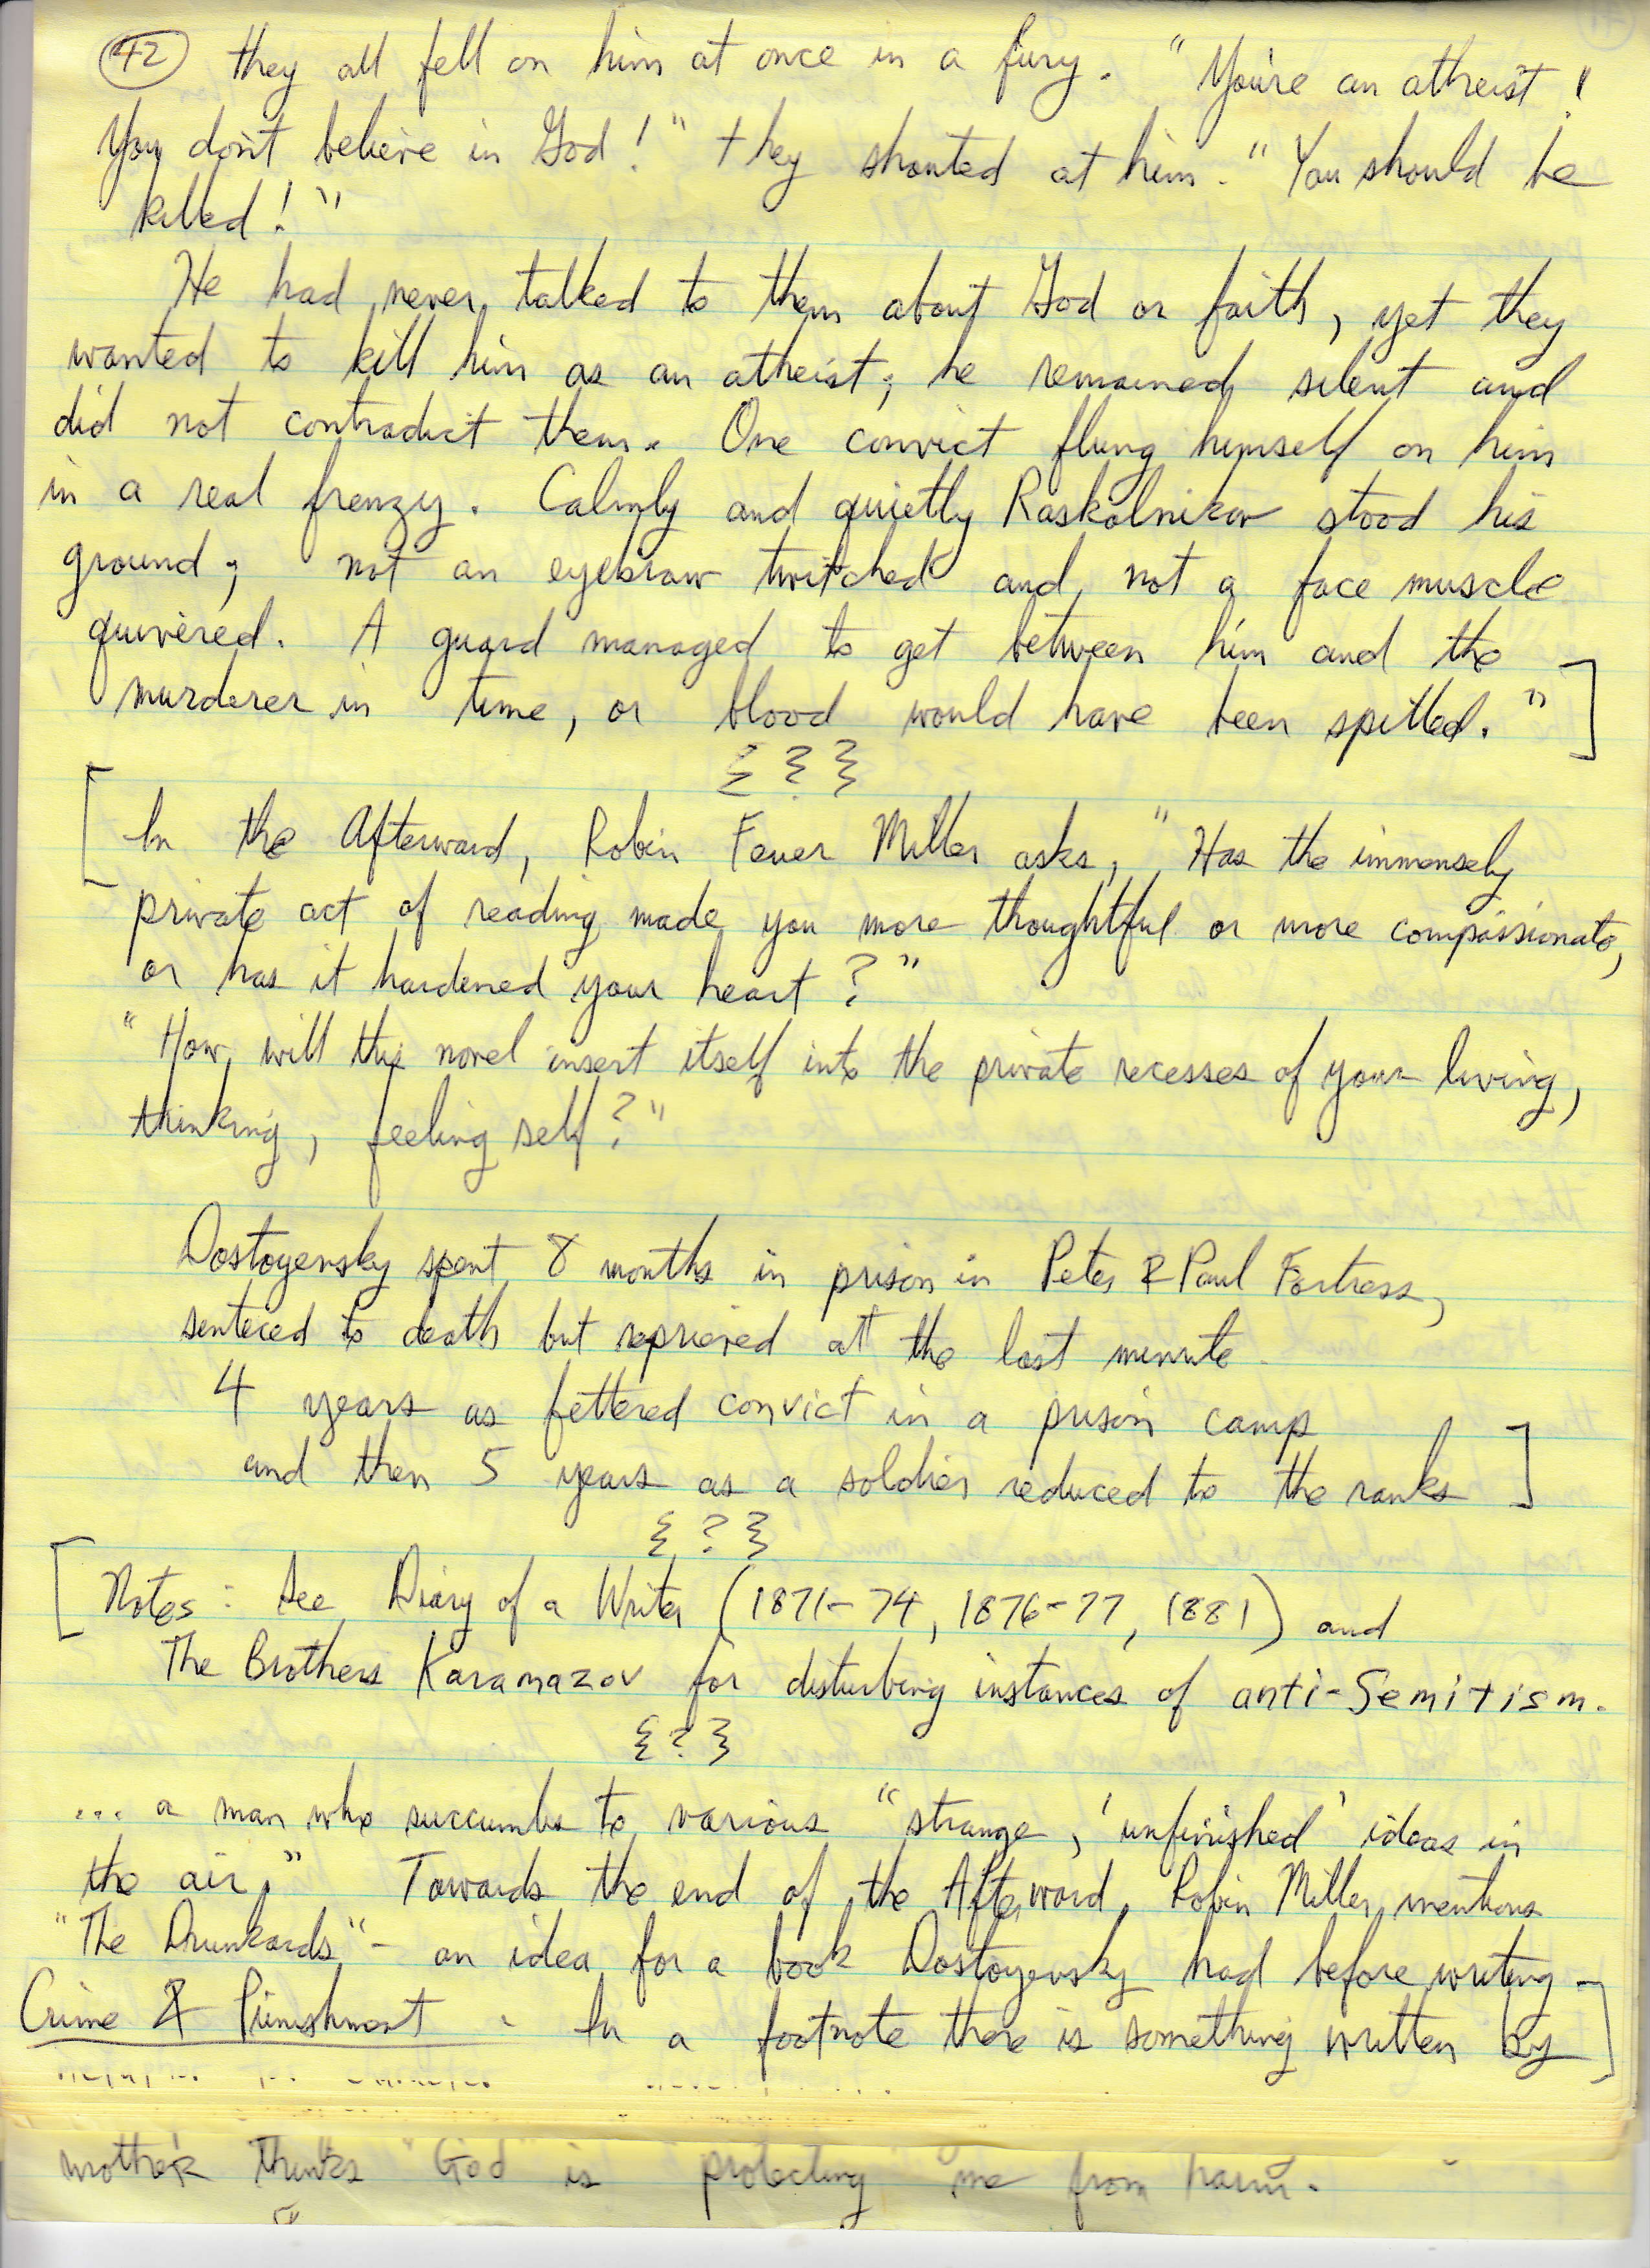 42 they all fell on him at once in a fury. "You're an atheist!
You don't believe in God!" they shouted at him. "You should be
killed!"
He had never talked to them about God or faith, yet they
wanted to kill him as an atheist; he remained silent and
did not contradict them. One convict flung himself on him
in a real frenzy. Calmly and quietly Raskolnikov stood his
ground; not an eyebrow twitched and not a face muscle
quivered. A guard managed to get between him and the
murderer in time, or blood would have been spilled."]
{?}
[In the Afterward, Robin Feuer Miller asks, "Has the immensely
private act of reading made you more thoughtful or more compassionate,
or has it hardened your heart?"
"How will this novel insert itself into the private recesses of your living,
thinking, feeling self?"
Dostoyevsky spent 8 months in prison in Peter & Paul Fortress,
senteced to death but reprieved at the last minute
4 years as fettered convict in a prison camp
and then 5 years as a soldier reduced to the ranks]
{?}
[Notes: See Diary of a Writer (1871-74, 1876-77, 1881) and
The Brothers Karamazov for disturbing instances of anti-Semitism.
{?}
... a man who succumbs to various "strange, 'unfinished' ideas in
the air." Towards the end of the Afterword, Robin Miller mentions
"The Drunkards" - an idea for a book Dostoyevsky had before writing -
Crime & Punishment - In a footnote there is something written by]
mother thinks "God" is "protecting" me from harm.